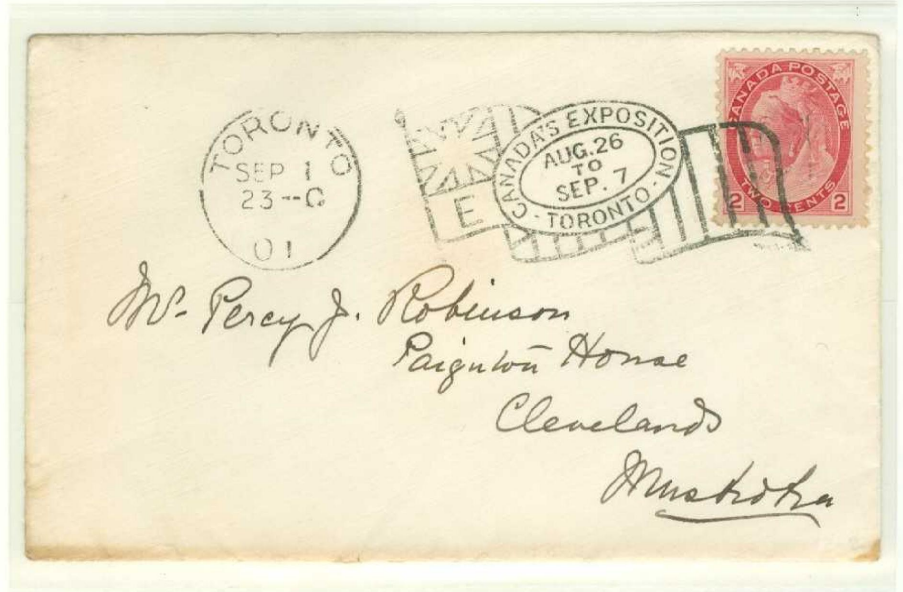 TORONTO
SEP 1
23--0
01
E
CANADA'S EXPOSITION
AUG. 26
TO
SEP. 7
- TORONTO -
CANADA POSTAGE
TWO CENTS
2 2
Mr. Percy J. Robinson
Paignton House
Clevelands
Muskoka